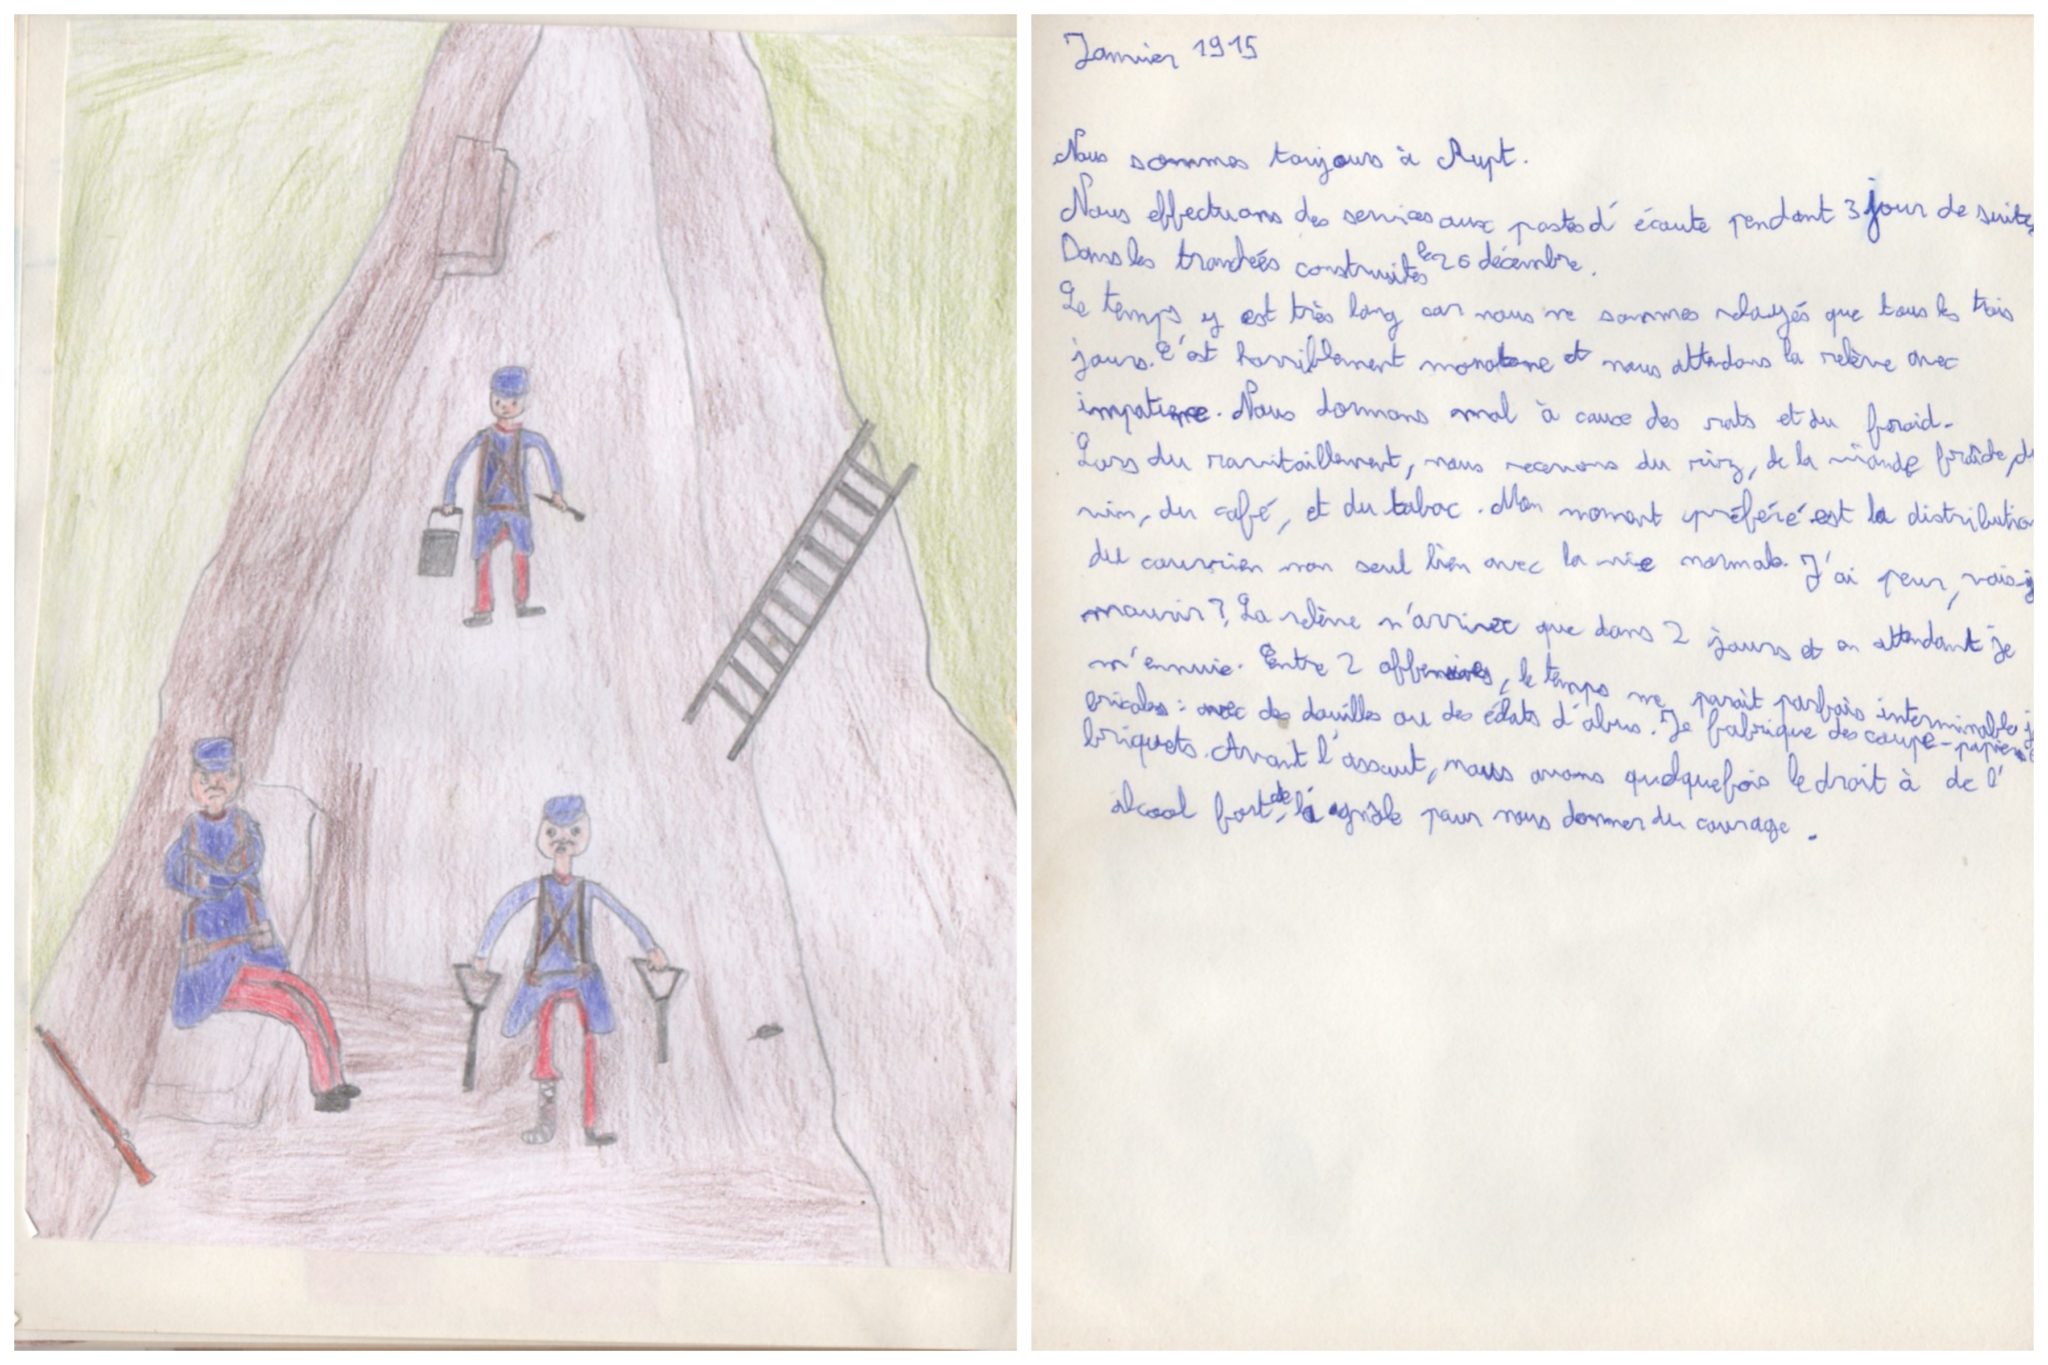 Janvier 1915
Nous sommes toujours à Rupt.
Nous effectuons des services aux postes d'écoute pendant 3 jour de suite,
Dans les tranchéés construites le 26 décembre.
Le temps y est très long car nous ne sommes relayés que tous les trois
jours. C'est horriblement monotone et nous attendons la relève avec
impatience. Nous dormons mal à cause des rats et du froid.
Lors du ravitaillement, nous recevons du riz, de la viande froide, du
vin, du café, et du tabac. Mon moment préféré est la distribution
du courrier mon seul lien avec la vie normale. J'ai peur, vais-j
mourir ? La relève n'arrive que dans 2 jours et en attendant je
m'ennuie. Entre 2 offensives, le temps me parait parfois interminable j
avec des douilles ou des éclats d'obus. Je fabrique des coupe-papiers
briquets. Avant l'assaut, nous avons quelquefois le droit à de l'
alcool fort, de la gnôle pour nous donner du courage.